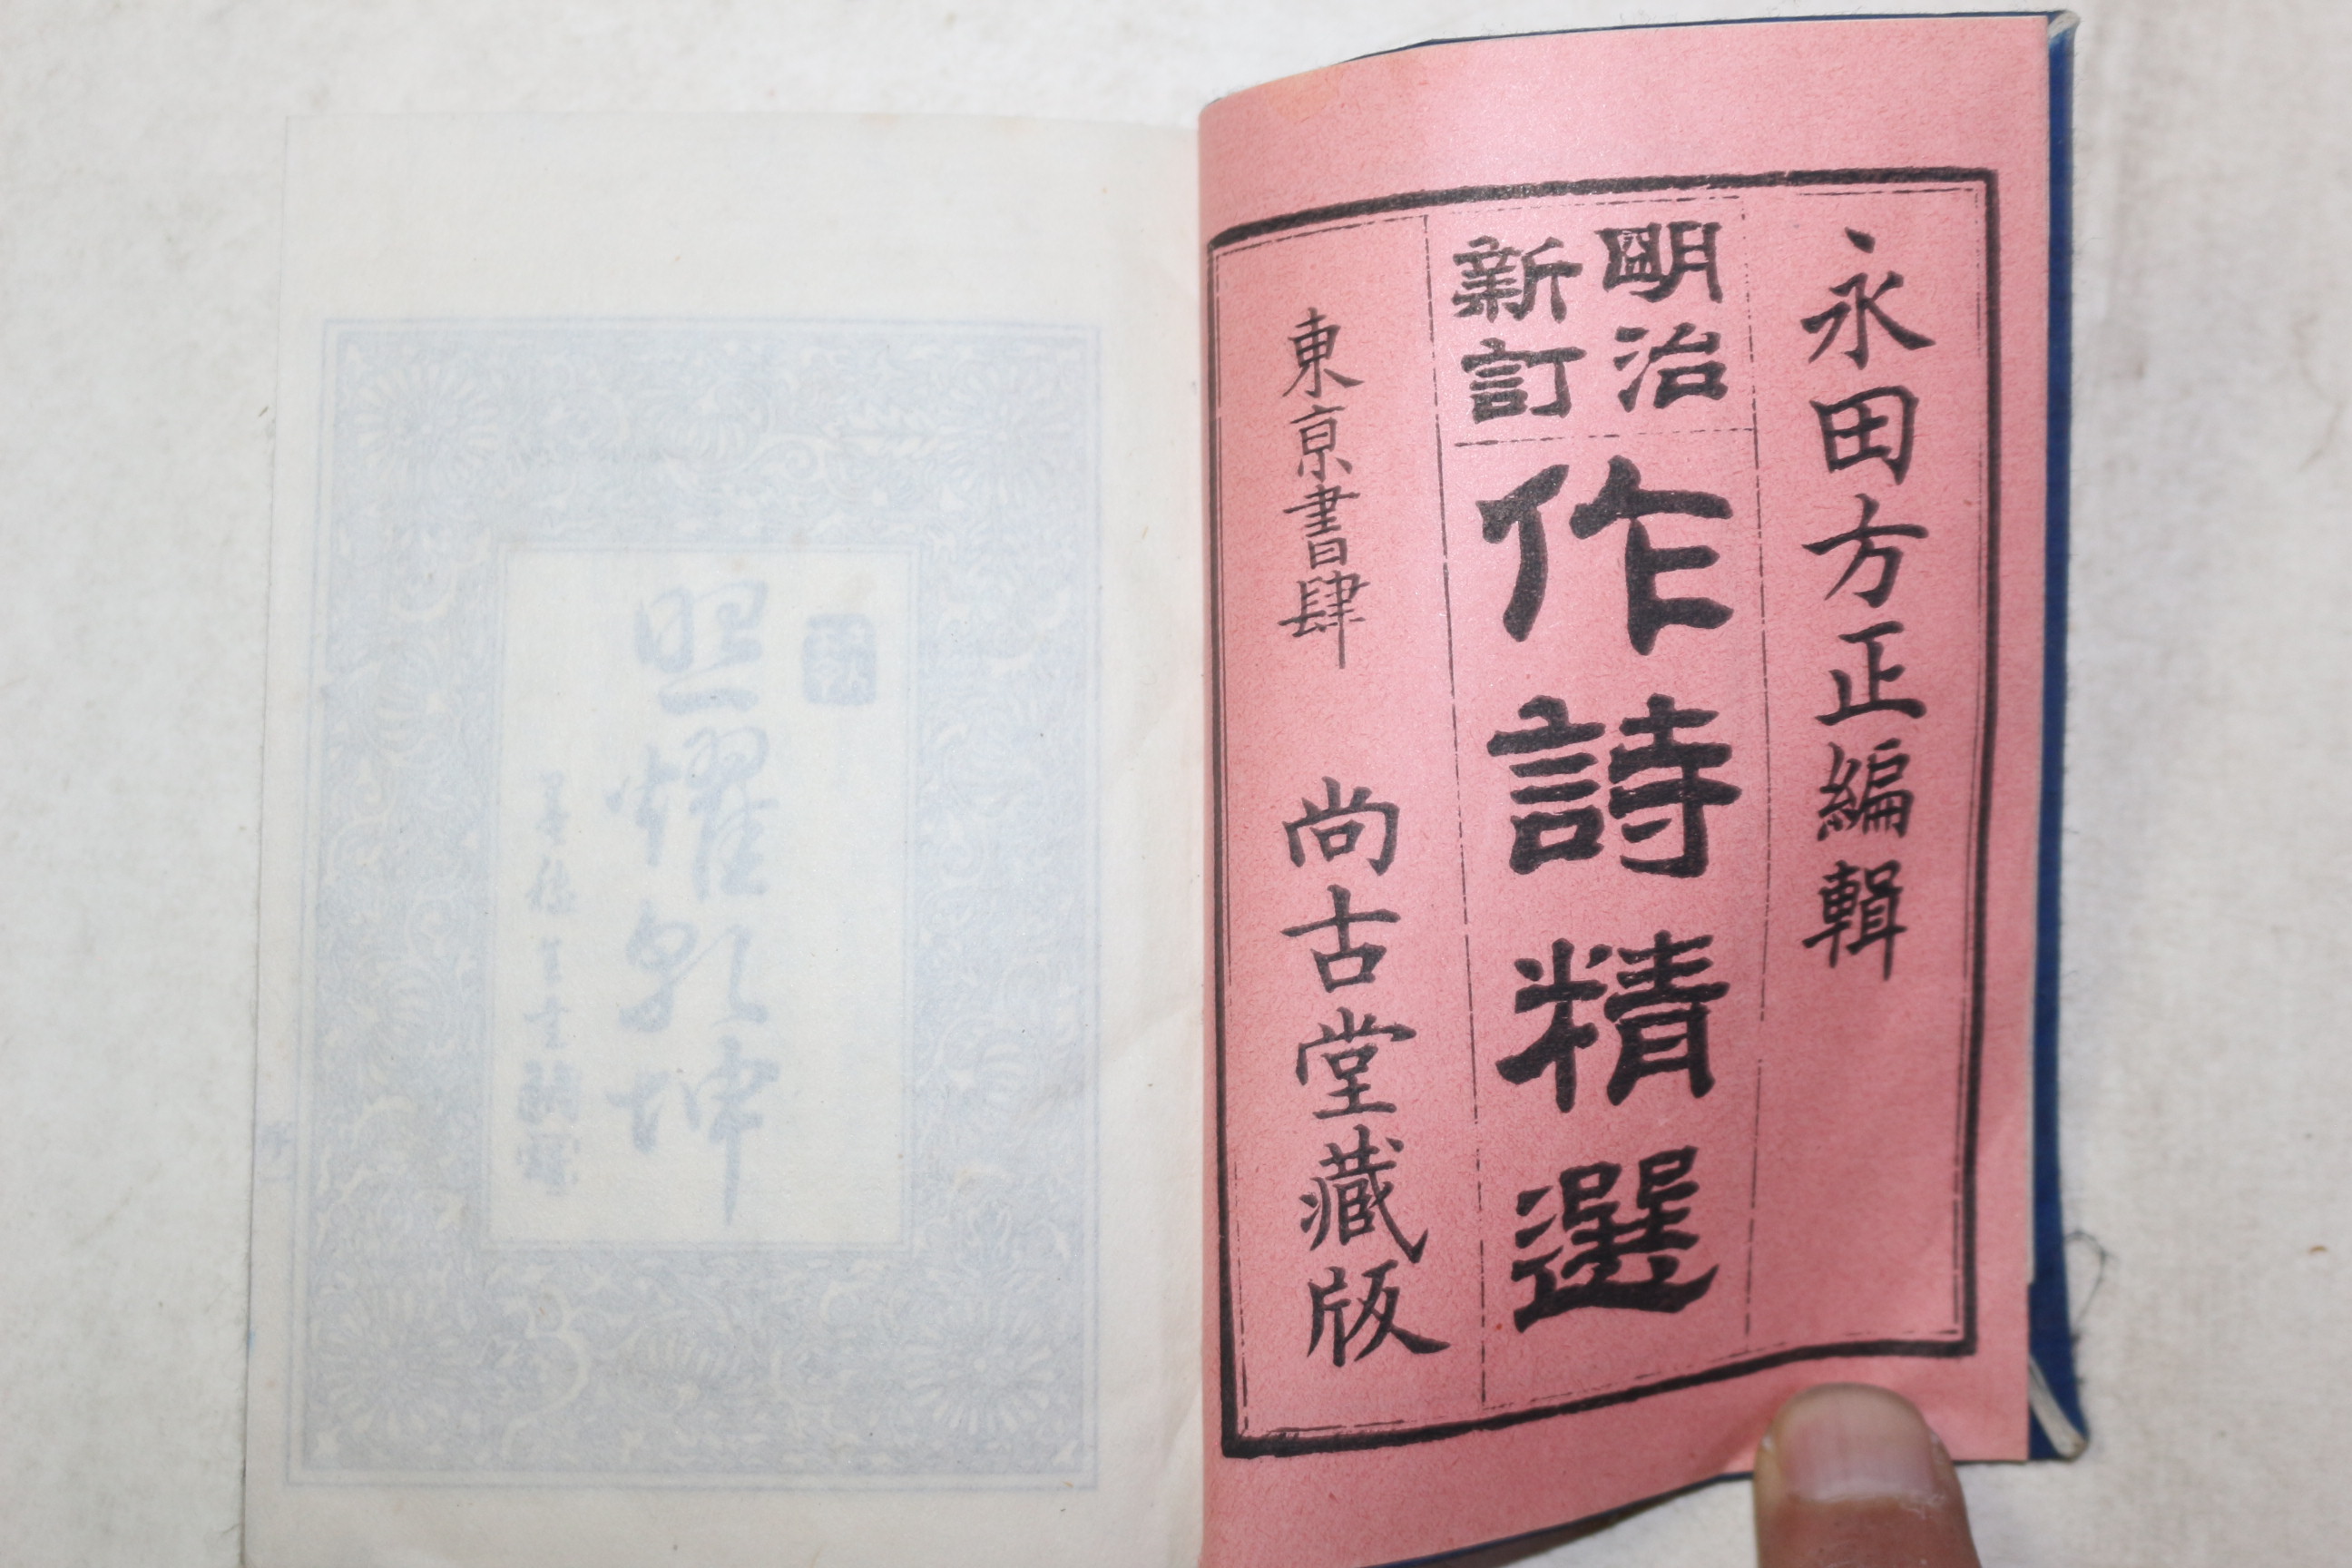 永田方正編輯
明治
新訂
作詩精選
東京書肆 尚古堂藏版
照耀乾坤